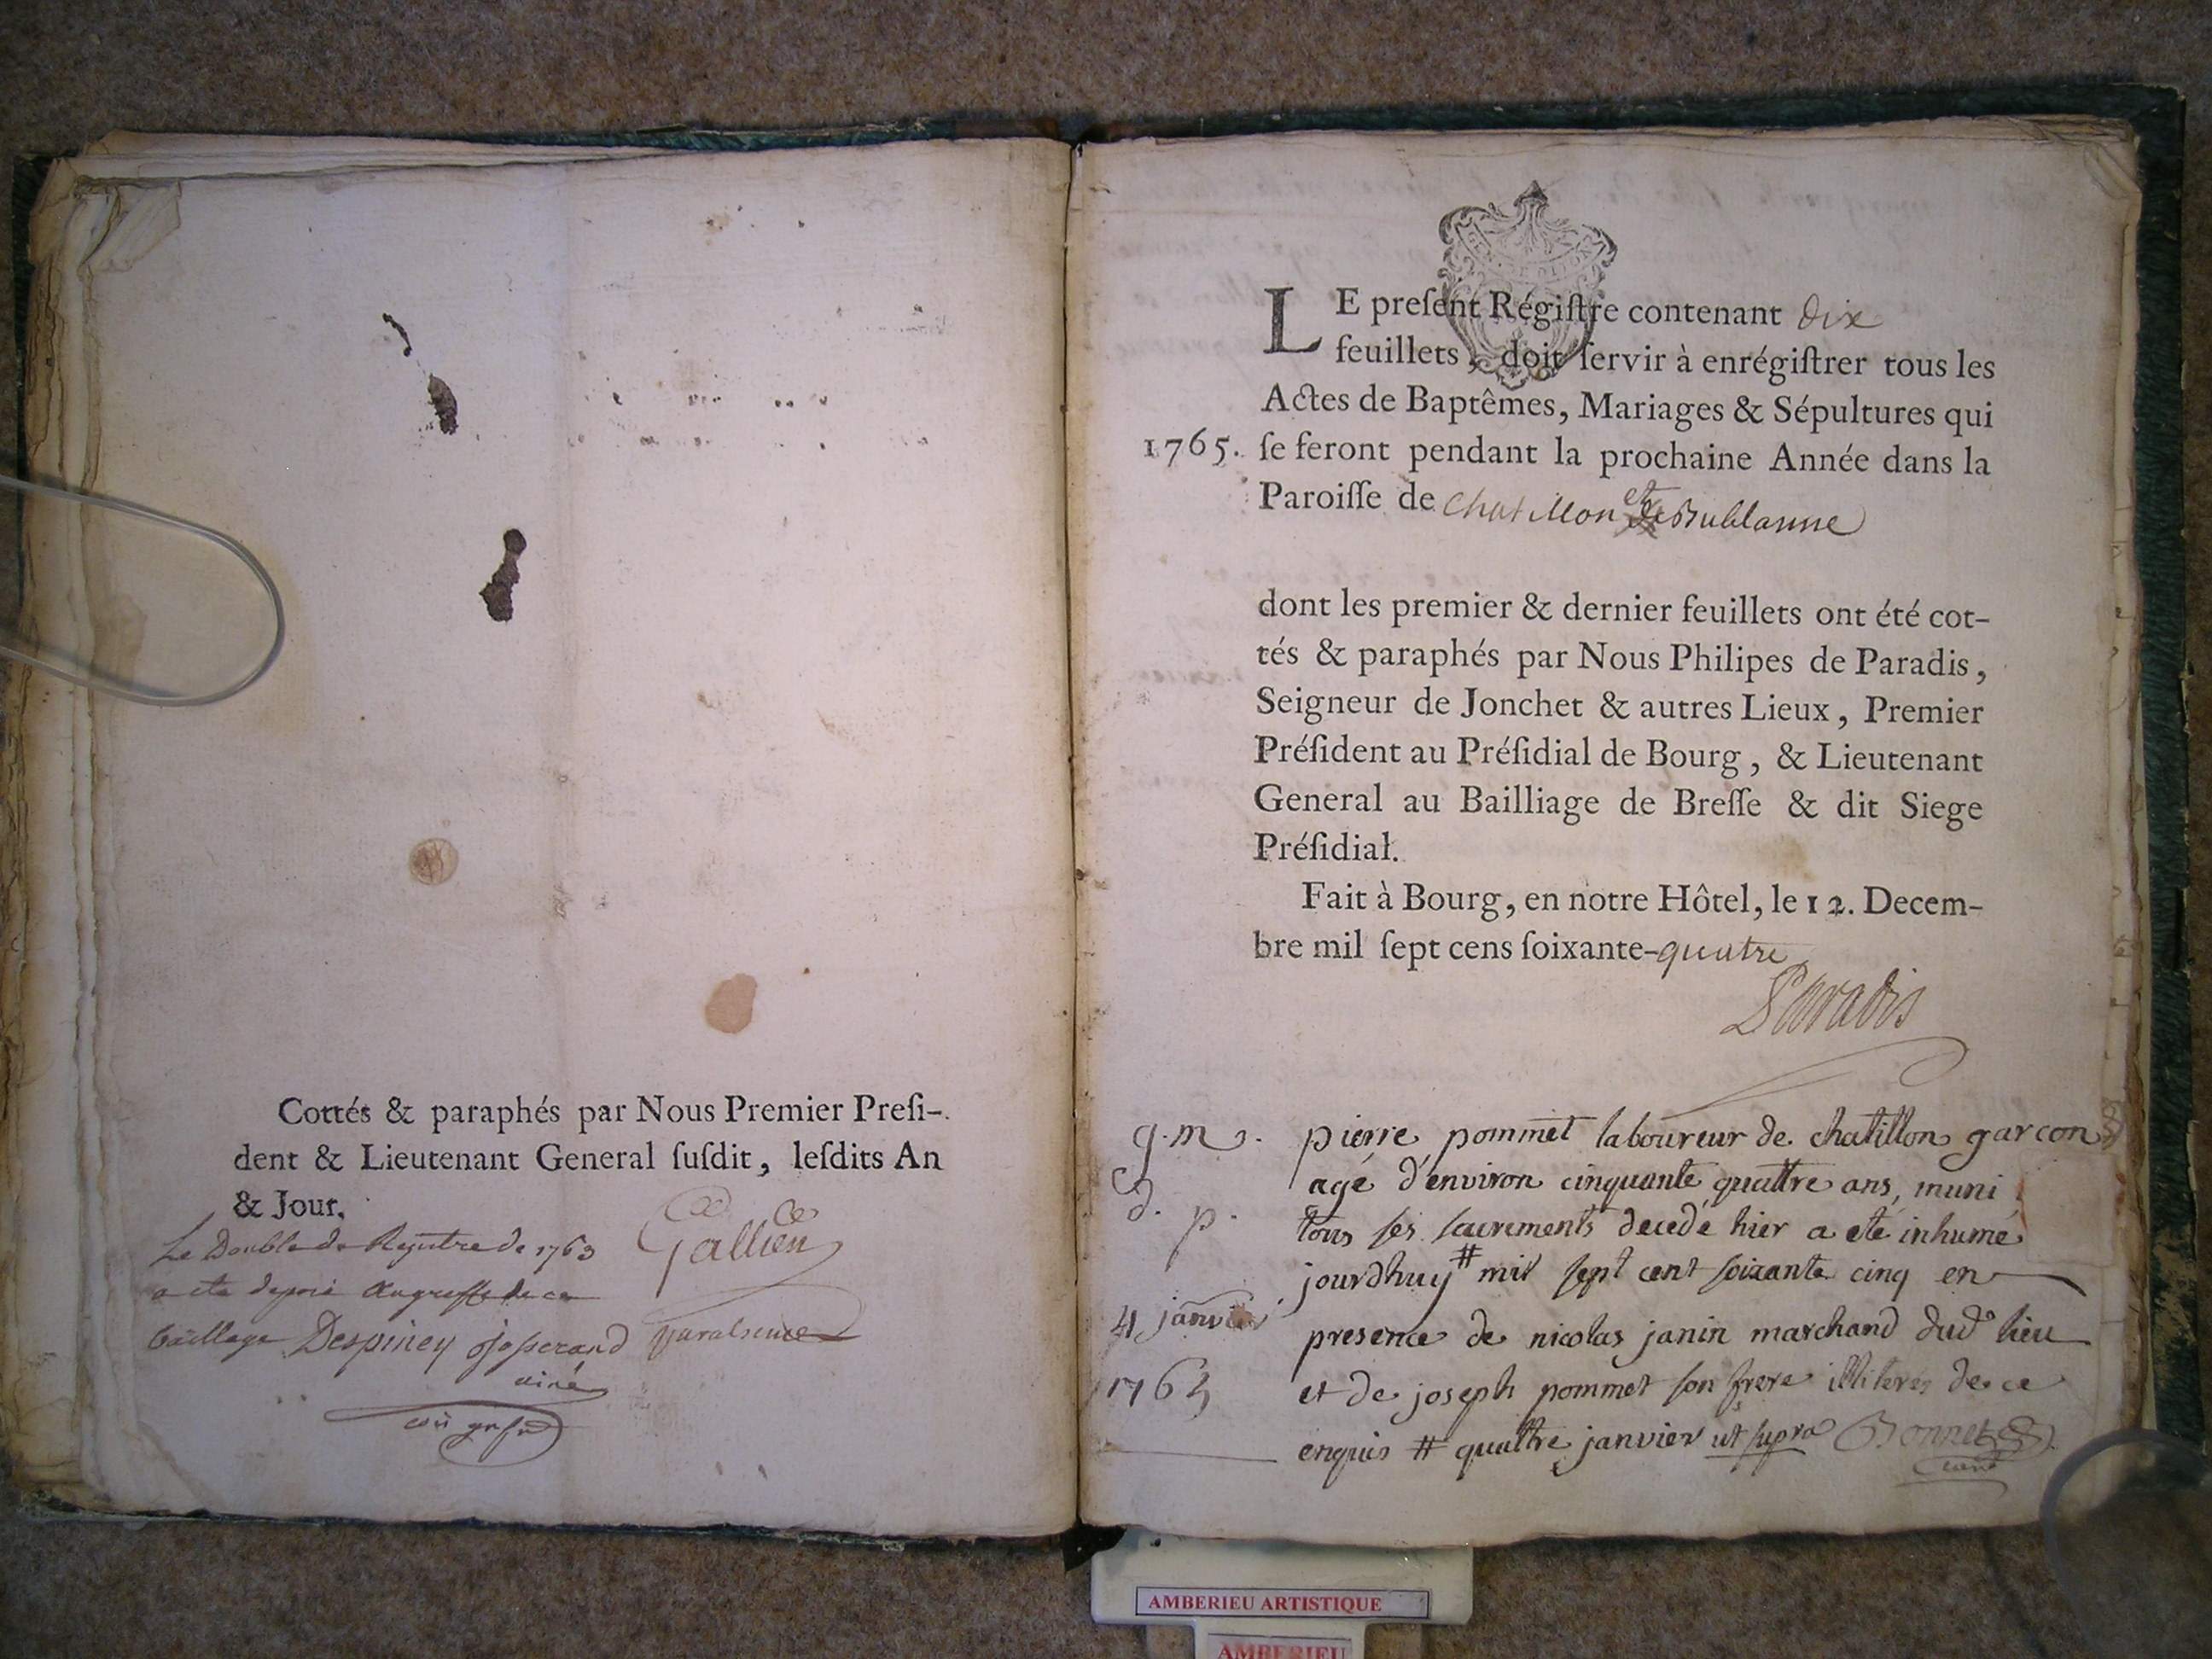 Cottés & paraphés par Nous Premier Preſi-
dent & Lieutenant General ſuſdit, leſdits An
& Jour.
Le Double du Registre de 1763
a été deposé au greffe de ce
bailliage Despiney
Gallien
par absence
ainé
LE preſent Régiſtre contenant dix
feuillets, doit ſervir à enrégiſtrer tous les
Actes de Baptêmes, Mariages & Sépultures qui
1765. ſe feront pendant la prochaine Année dans la
Paroiſſe de Chatillon et Bublanne
dont les premier & dernier feuillets ont été cot-
tés & paraphés par Nous Philipes de Paradis,
Seigneur de Jonchet & autres Lieux, Premier
Préſident au Préſidial de Bourg, & Lieutenant
General au Bailliage de Breſſe & dit Siege
Préſidial.
Fait à Bourg, en notre Hôtel, le 12. Decem-
bre mil ſept cens ſoixante-quatre
Paradis
pierre pommet laboureur de chatillon garcon
agé d'environ cinquante quattre ans, muni
d. p. tous ses sacrements decedé hier a eté inhumé
jourdhuy # mil sept cent soixante cinq en
4 janvier presence de nicolas janin marchand dud lieu
1765 et de joseph pommet son frere illiterés de ce
enquis # quattre janvier ut supra Bonnet
curé
AMBERIEU ARTISTIQUE
AMBERIEU